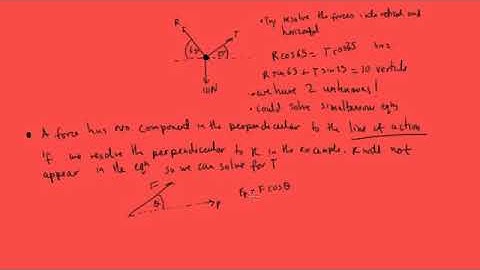 R
T
65
25
10N
• Try resolve the forces into vertical and
horizontal
R cos 65 = T cos 25
R sin 65 + T sin 25 = 10 vertical
• we have 2 unknowns!
• could solve simultaneous eqtns
• A force has no component in the perpendicular to the line of action
If we resolve the perpendicular to R in the example. R will not
appear in the eqtn so we can solve for T
F
θ
P
= F cos θ